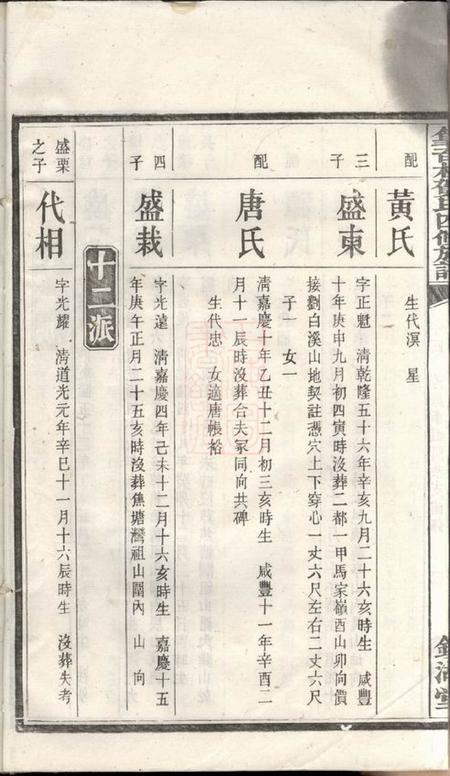 配
黃氏
生代溟 星
三子
盛東
字正魁 清乾隆五十六年辛亥九月二十六亥時生 咸豐
十年庚申九月初四寅時沒葬二都一甲馬家嶺酉山卯向價
接劉白溪山地契註憑穴上下穿心一丈六尺左右二丈六尺
子一 女一
配
唐氏
清嘉慶十年乙丑十二月初三亥時生 咸豐十一年辛酉二
月十一辰時沒葬合夫冢同向共碑
生代忠 女適唐帳裕
四子
盛栽
字光遠 清嘉慶四年己未十二月十六亥時生 嘉慶十五
年庚午正月二十五亥時沒葬焦塘灣祖山圍內 山 向
十二派
盛栗之子
代相
字光耀 清道光元年辛巳十一月十六辰時生 沒葬失考